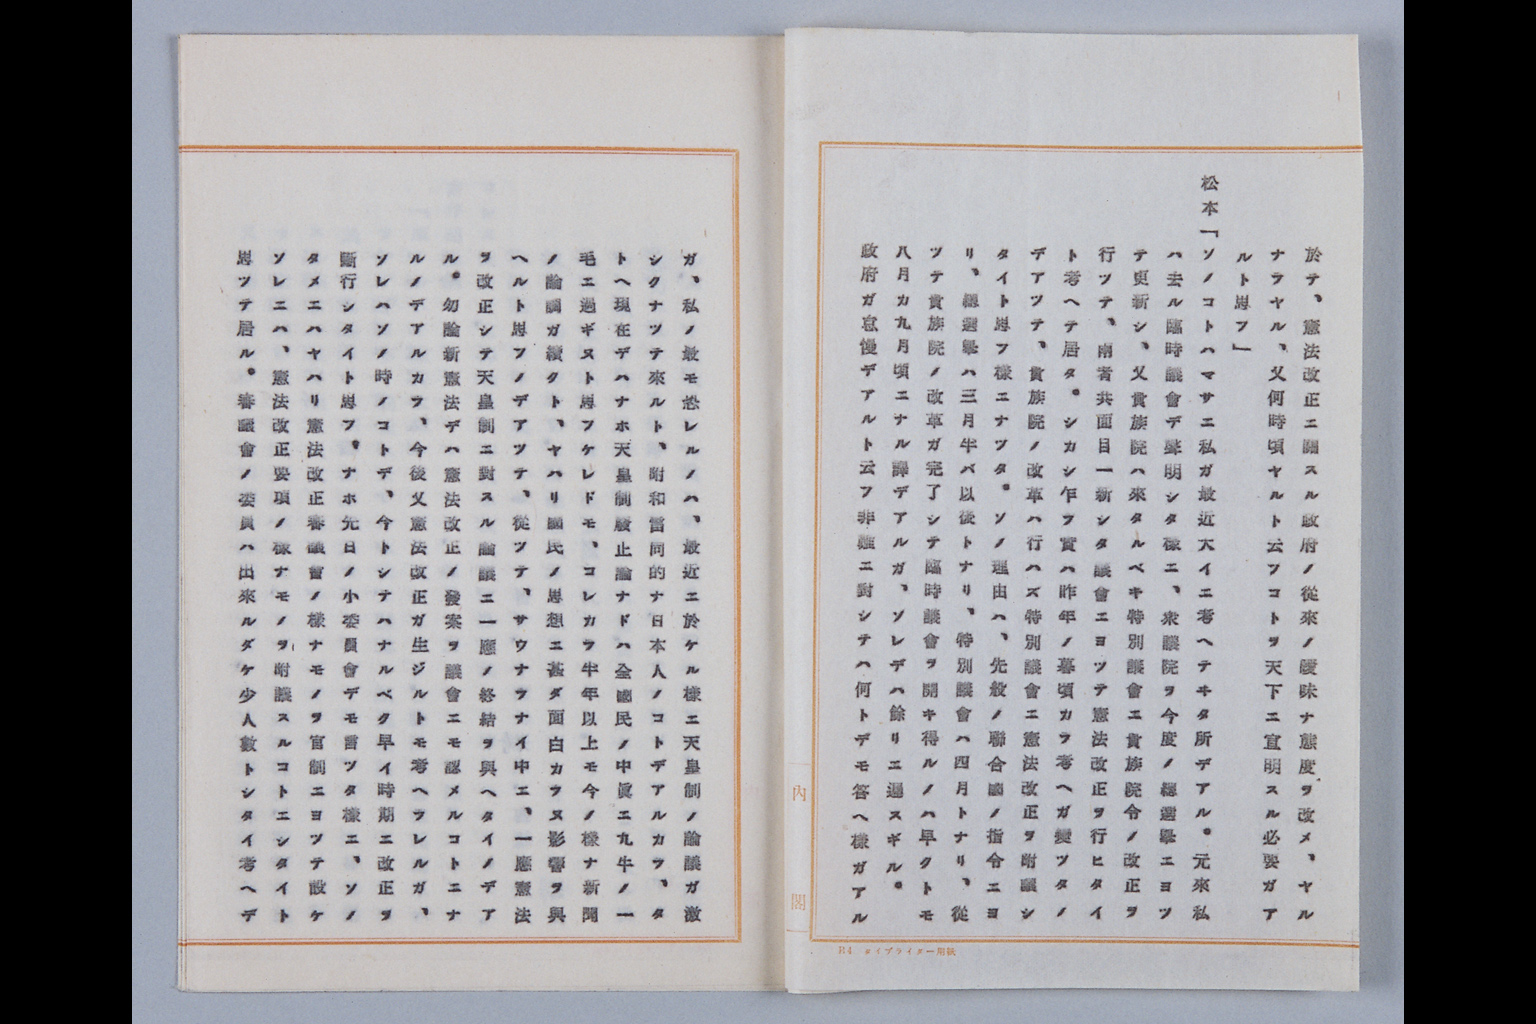 於テ、憲法改正ニ關スル政府ノ從來ノ曖昧ナ態度ヲ改メ、ヤル
ナラヤル、又何時頃ヤルト云フコトヲ天下ニ宣明スル必要ガア
ルト思フ」
松本「ソノコトハマサニ私ガ最近大イニ考ヘテキタ所デアル。元來私
ハ去ル臨時議會デ聲明シタ樣ニ、衆議院ヲ今度ノ總選擧ニヨツ
テ更新シ、又貴族院ハ來タルベキ特別議會ニ貴族院令ノ改正ヲ
行ツテ、兩者共面目一新シタ議會ニヨツテ憲法改正ヲ行ヒタイ
ト考ヘテ居タ。シカシ乍ラ實ハ昨年ノ暮頃カラ考ヘガ變ツタノ
デアツテ、貴族院ノ改革ハ行ハズ特別議會ニ憲法改正ヲ附議シ
タイト思フ樣ニナツタ。ソノ理由ハ、先般ノ聯合國ノ指令ニヨ
リ、總選擧ハ三月半バ以後トナリ、特別議會ハ四月トナリ、從
ツテ貴族院ノ改革ガ完了シテ臨時議會ヲ開キ得ルノハ早クトモ
八月カ九月頃ニナル譯デアルガ、ソレデハ餘リニ遲スギル。
政府ガ怠慢デアルト云フ非難ニ對シテハ何トデモ答ヘ樣ガアル
内閣
B4 タイプライター用紙
ガ、私ノ最モ恐レルノハ、最近ニ於ケル樣ニ天皇制ノ論議ガ激
シクナツテ來ルト、附和雷同的ナ日本人ノコトデアルカラ、タ
トヘ現在デハナホ天皇制廢止論ナドハ全國民ノ中眞ニ九牛ノ一
毛ニ過ギヌト思フケレドモ、コレカラ半年以上モ今ノ樣ナ新聞
ノ論調ガ續クト、ヤハリ國民ノ思想ニ甚ダ面白カラヌ影響ヲ與
ヘルト思フノデアツテ、從ツテ、サウナラナイ中ニ、一應憲法
ヲ改正シテ天皇制ニ對スル論議ニ一應ノ終結ヲ與ヘタイノデア
ル。勿論新憲法デハ憲法改正ノ發案ヲ議會ニモ認メルコトニナ
ルノデアルカラ、今後又憲法改正ガ生ジルトモ考ヘラレルガ、
ソレハソノ時ノコトデ、今トシテハナルベク早イ時期ニ改正ヲ
斷行シタイト思フ。ナホ先日ノ小委員會デモ言ツタ樣ニ、ソノ
タメニハヤハリ憲法改正審議會ノ樣ナモノヲ官制ニヨツテ設ケ
ソレニハ、憲法改正要項ノ樣ナモノヲ附議スルコトニシタイト
思ツテ居ル。審議會ノ委員ハ出來ルダケ少人數トシタイ考ヘデ